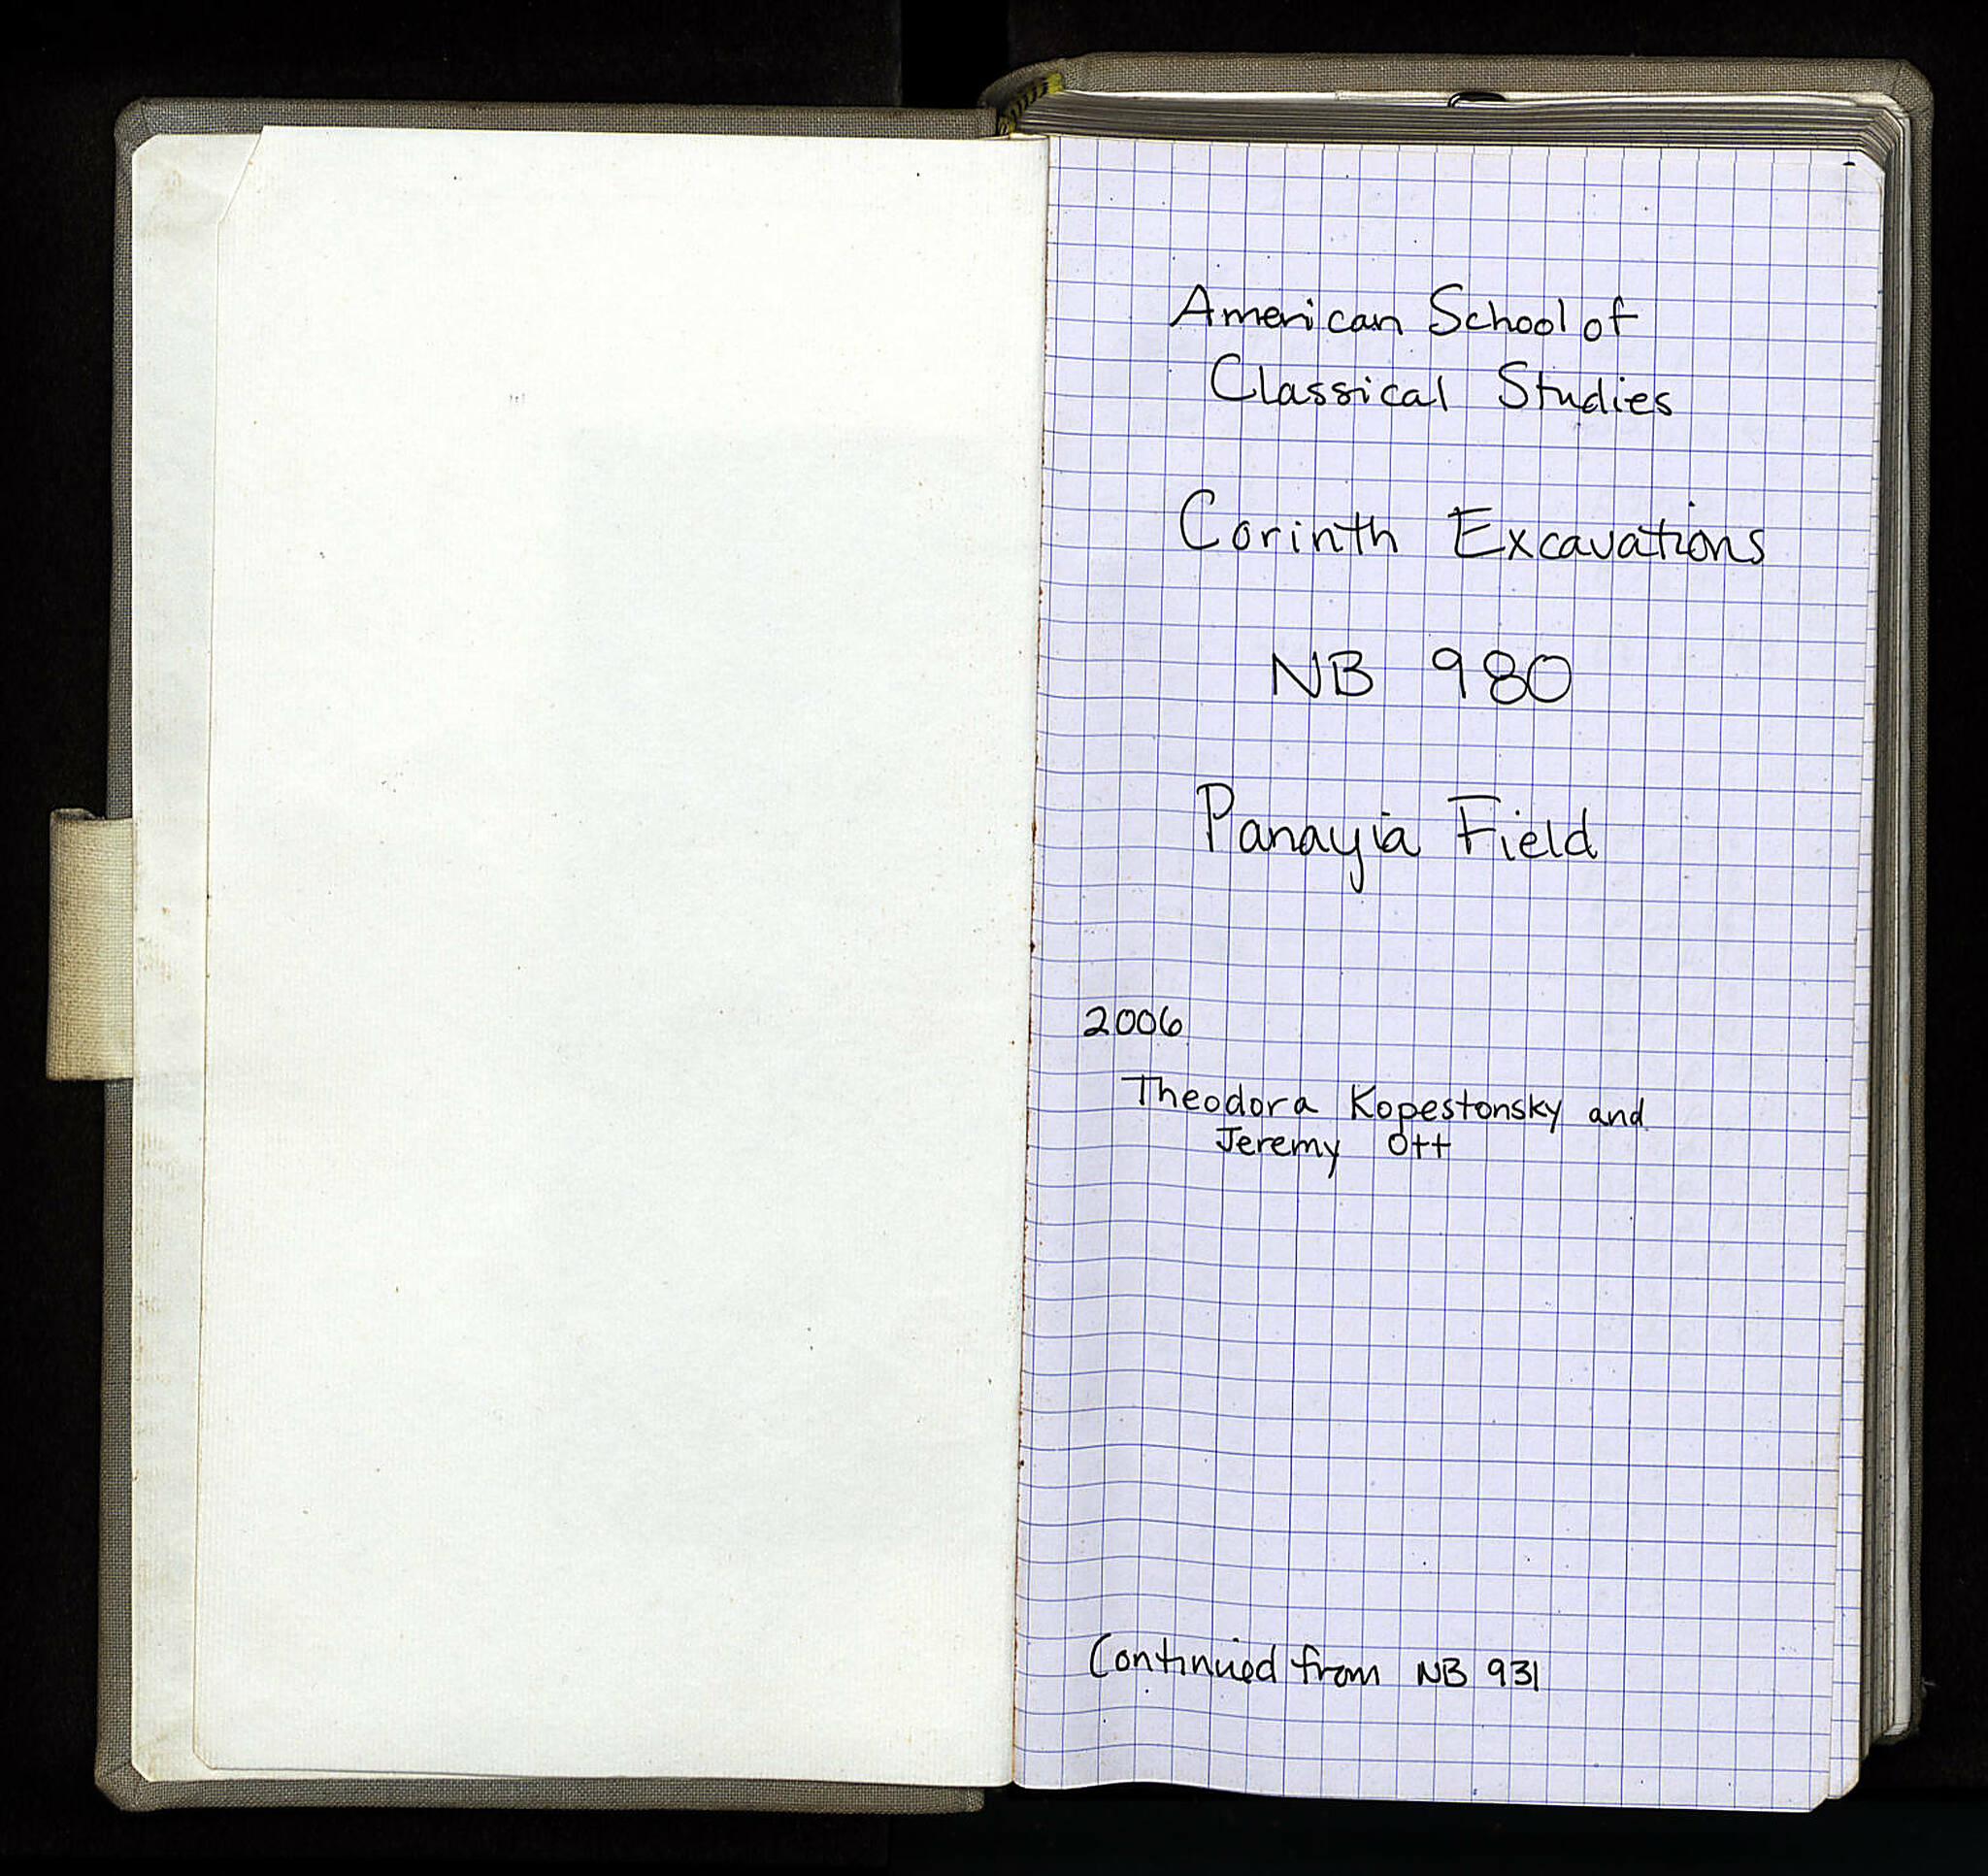 American School of
Classical Studies
Corinth Excavations
NB 980
Panayia Field
2006
Theodora Kopestonsky and
Jeremy Ott
Continued from NB 931